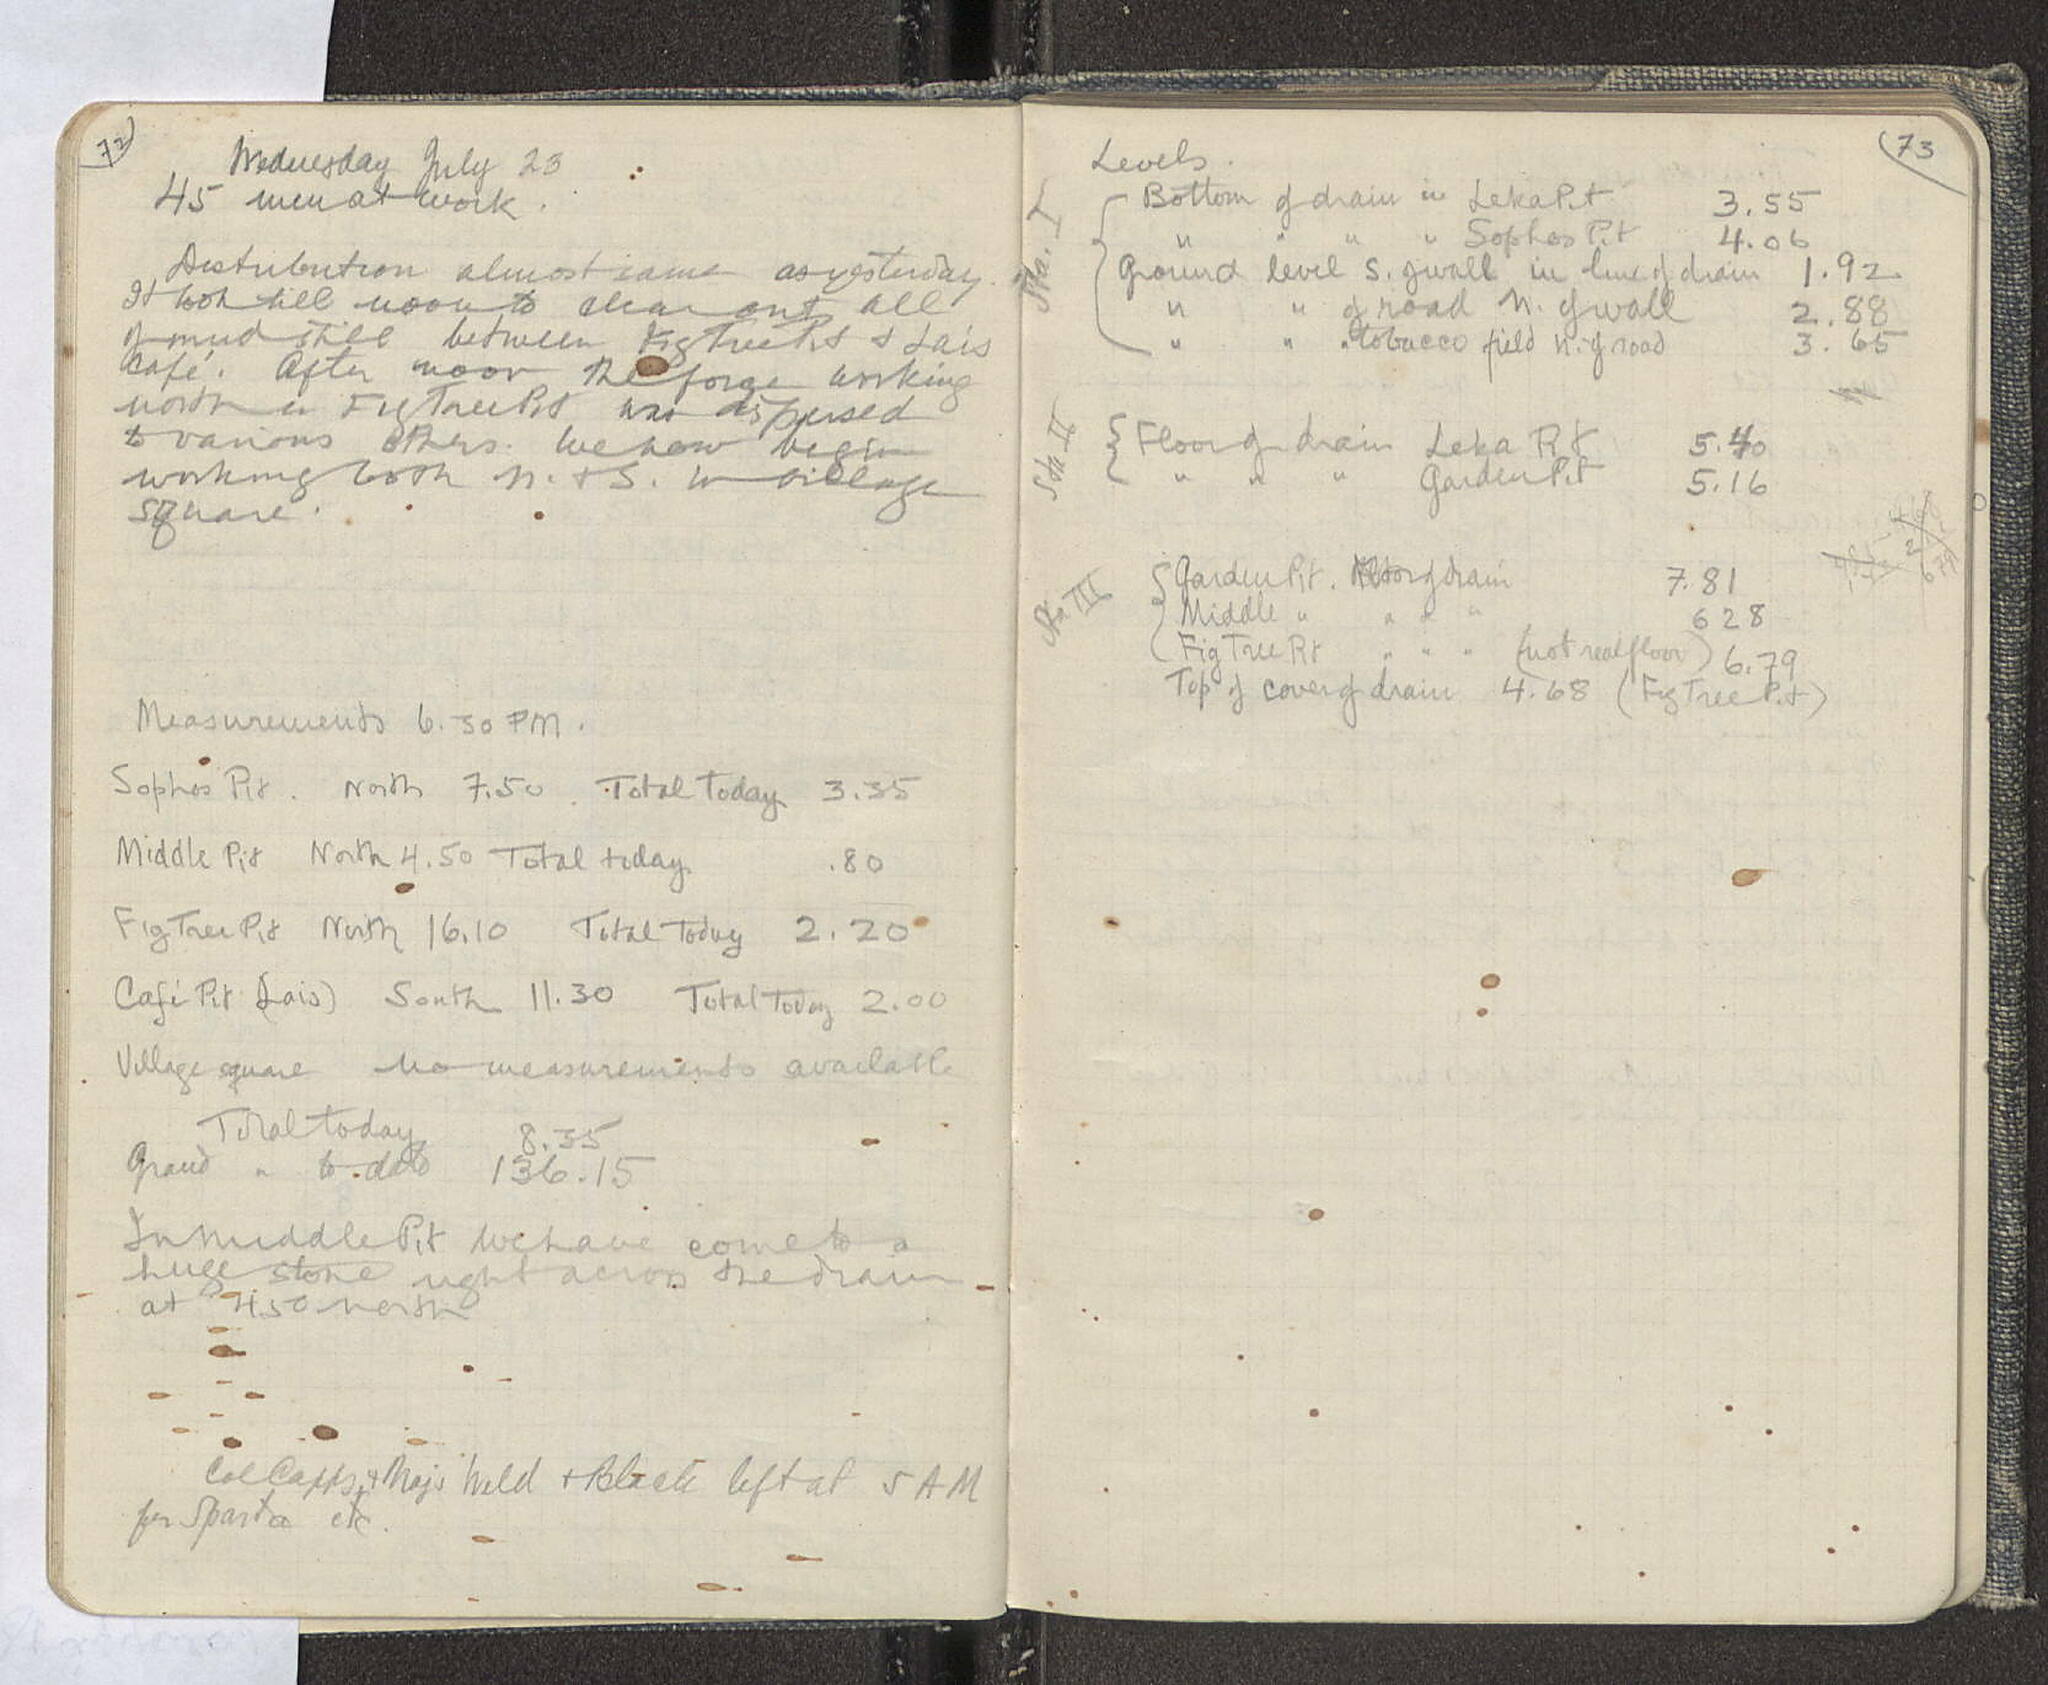 72
Wednesday July 23
45 men at work.
Distribution almost same as yesterday.
It took till noon to clear out all
of mud still between FigTree Pit & Lais
Café. After noon the force working
north in FigTree Pit was dispersed
to various others. We now begin
working both N. & S. in village
square.
Measurements 6.30 PM.
Sophos Pit. North 7.50. Total Today 3.35
Middle Pit North 4.50 Total today .80
FigTree Pit North 16.10 Total Today 2.20
Café Pit (Lais) South 11.30 Total Today 2.00
Village square No measurements available
Total today 8.35
Grand " to date 136.15
In Middle Pit we have come to a
huge stone right across the drain
at 4.50 north
Col Capps, & Majs Weld & Black left at 5 AM
for Sparta etc.
73
Levels.
Sta. I
Bottom of drain in Leka Pit 3.55
" " " " Sophos Pit 4.06
Ground level S. of wall in line of drain 1.92
" " of road N. of wall 2.88
" " " tobacco field N. of road 3.65
Sta II
Floor of drain Leka Pit 5.40
" " " Garden Pit 5.16
Sta III
Garden Pit. Floor of drain 7.81
Middle " " " " 6 28
FigTree Pit " " " (not real floor) 6.79
Top of cover of drain 4.68 (FigTree Pit)